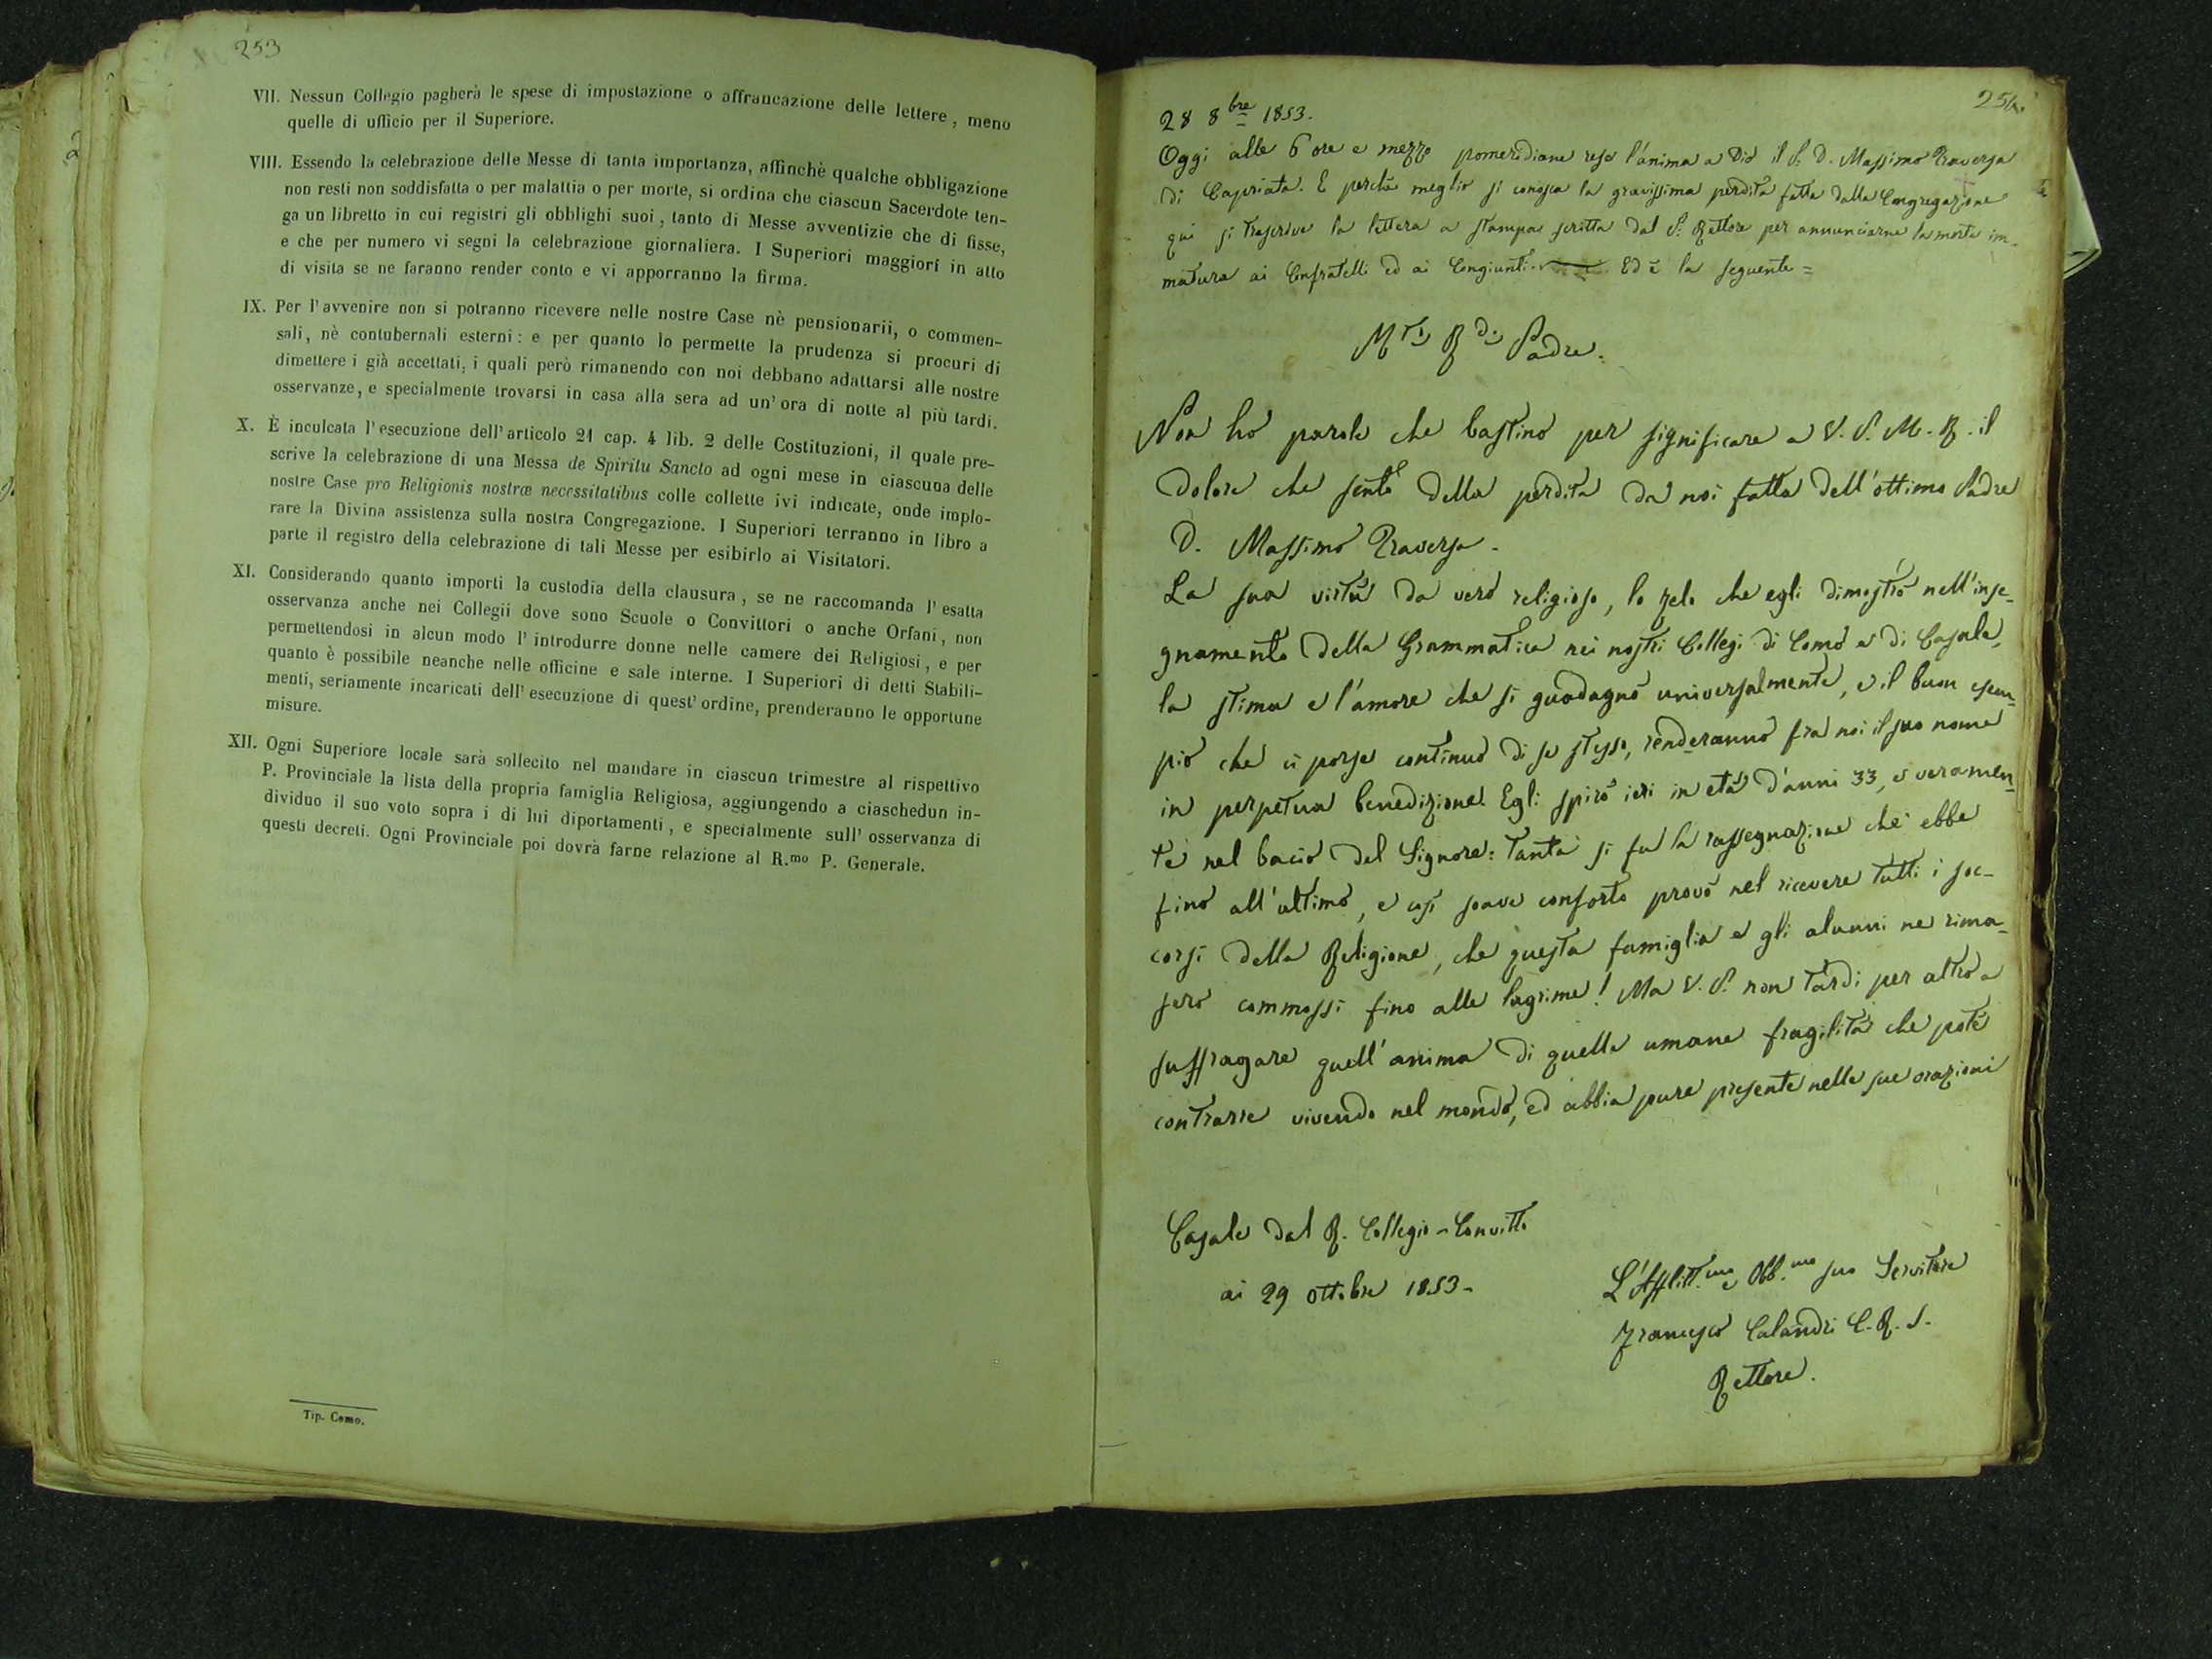 253
VII. Nessun Collegio pagherà le spese di impostazione o affrancazione delle lettere, meno
quelle di ufficio per il Superiore.
VIII. Essendo la celebrazione delle Messe di tanta importanza, affinchè qualche obbligazione
non resti non soddisfatta o per malattia o per morte, si ordina che ciascun Sacerdote ten-
ga un libretto in cui registri gli obblighi suoi, tanto di Messe avventizie che di fisse,
e che per numero vi segni la celebrazione giornaliera. I Superiori maggiori in atto
di visita se ne faranno render conto e vi apporranno la firma.
IX. Per l'avvenire non si potranno ricevere nelle nostre Case nè pensionarii, o commen-
sali, nè contubernali esterni: e per quanto lo permette la prudenza si procuri di
dimettere i già accettati; i quali però rimanendo con noi debbano adattarsi alle nostre
osservanze, e specialmente trovarsi in casa alla sera ad un'ora di notte al più tardi.
X. È inculcata l'esecuzione dell'articolo 21 cap. 4 lib. 2 delle Costituzioni, il quale pre-
scrive la celebrazione di una Messa de Spiritu Sancto ad ogni mese in ciascuna delle
nostre Case pro Religionis nostræ necessitatibus colle collette ivi indicate, onde implo-
rare la Divina assistenza sulla nostra Congregazione. I Superiori terranno in libro a
parte il registro della celebrazione di tali Messe per esibirlo ai Visitatori.
XI. Considerando quanto importi la custodia della clausura, se ne raccomanda l'esatta
osservanza anche nei Collegii dove sono Scuole o Convittori o anche Orfani, non
permettendosi in alcun modo l'introdurre donne nelle camere dei Religiosi, e per
quanto è possibile neanche nelle officine e sale interne. I Superiori di detti Stabili-
menti, seriamente incaricati dell'esecuzione di quest'ordine, prenderanno le opportune
misure.
XII. Ogni Superiore locale sarà sollecito nel mandare in ciascun trimestre al rispettivo
P. Provinciale la lista della propria famiglia Religiosa, aggiungendo a ciaschedun in-
dividuo il suo voto sopra i di lui diportamenti, e specialmente sull'osservanza di
questi decreti. Ogni Provinciale poi dovrà farne relazione al R.mo P. Generale.
Tip. Como.
254.
28 8bre 1853.
Oggi alle 6 ore e mezzo pomeridiane rese l'anima a Dio il P. D. Massimo Traversa
di Capriata. E perchè meglio si conosca la gravissima perdita fatta dalla Congregazione
qui si trascrive la lettera a stampa scritta dal P. Rettore per annunciarne la morte im-
matura ai Confratelli ed ai Congiunti. Ed è la seguente =
M.to R.do Padre.
Non ho parole che bastino per significare a V. P. M. R. il
dolore che sento della perdita da noi fatta dell'ottimo Padre
D. Massimo Traversa.
La sua virtù da vero religioso, lo zelo che egli dimostrò nell'inse-
gnamento della Grammatica nei nostri Collegi di Como e di Casale,
la stima e l'amore che si guadagnò universalmente, e il buon esem-
pio che ci porse continuo di se stesso, renderanno fra noi il suo nome
in perpetua benedizione. Egli spirò ieri in età d'anni 33, e veramen-
te nel bacio del Signore: tanta si fu la rassegnazione che ebbe
fino all'ultimo, e così soave conforto provò nel ricevere tutti i soc-
corsi della Religione, che questa famiglia e gli alunni ne rima-
sero commossi fino alle lagrime! Ma V. P. non tardi per altro a
suffragare quell'anima di quelle umane fragilità che potè
contrarre vivendo nel mondo, ed abbia pure presente nelle sue orazioni
Casale dal R. Collegio-Convitto
ai 29 ottobre 1853.
L'Afflitt.mo e Obb.mo suo Servitore
Francesco Calandri C. R. S.
Rettore.